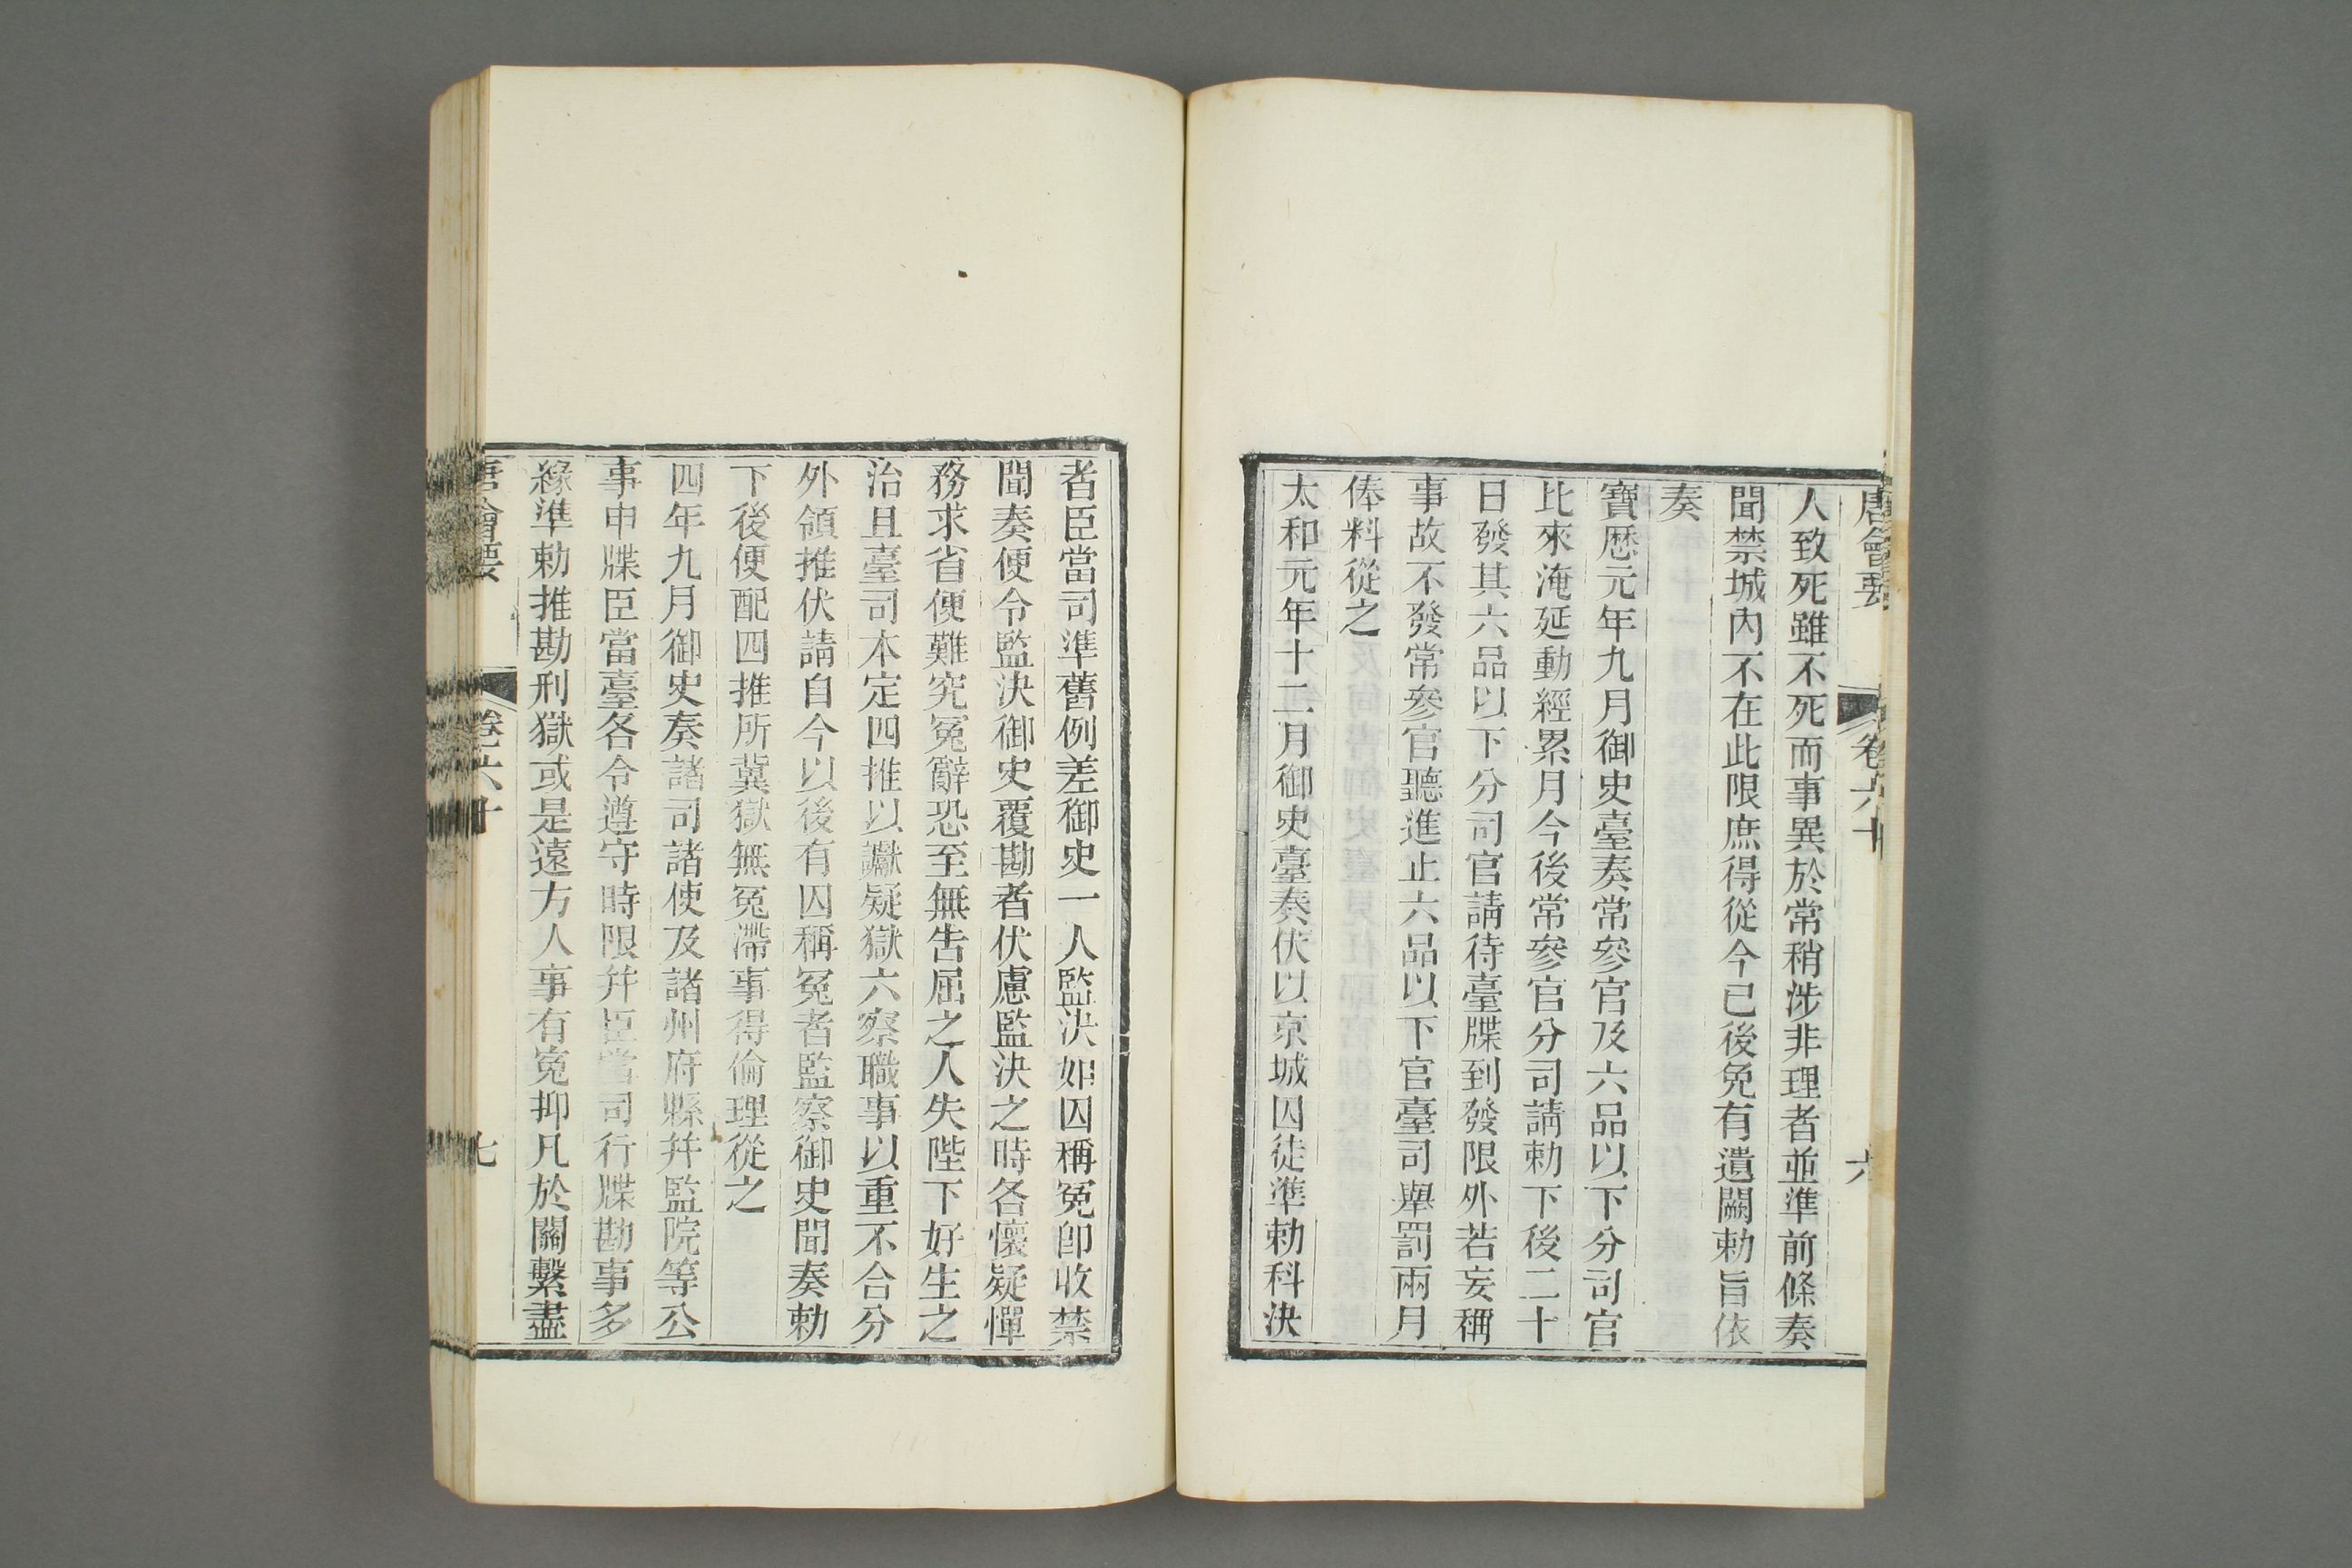 唐會要 卷六十 六
人致死雖不死而事異於常稍涉非理者並準前條奏
聞禁城內不在此限庶得從今已後免有遺闕勅旨依
奏
寶歷元年九月御史臺奏常參官及六品以下分司官
比來淹延動經累月今後常參官分司請勅下後二十
日發其六品以下分司官請待臺牒到發限外若妄稱
事故不發常參官聽進止六品以下官臺司舉罰兩月
俸料從之
太和元年十二月御史臺奏伏以京城囚徒準勅科決
者臣當司準舊例差御史一人監決如囚稱冤卽收禁
聞奏便令監決御史覆勘者伏慮監決之時各懷疑憚
務求省便難究冤辭恐至無告屈之人失陛下好生之
治且臺司本定四推以讞疑獄六察職事以重不合分
外領推伏請自今以後有囚稱冤者監察御史聞奏勅
下後便配四推所冀獄無冤滯事得倫理從之
四年九月御史奏諸司諸使及諸州府縣幷監院等公
事申牒臣當臺各令遵守時限幷臣當司行牒勘事多
緣準勅推勘刑獄或是遠方人事有冤抑凡於關繫盡
唐會要 卷六十 七